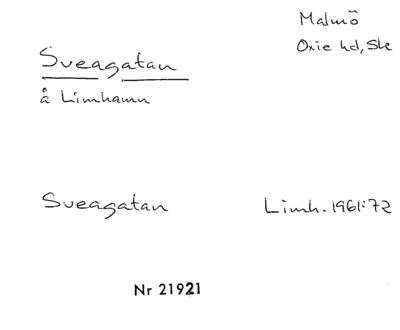 Malmö
Oxie hd, Sk
Sveagatan
å Limhamn
Sveagatan Limh. 1961:72
Nr 21921